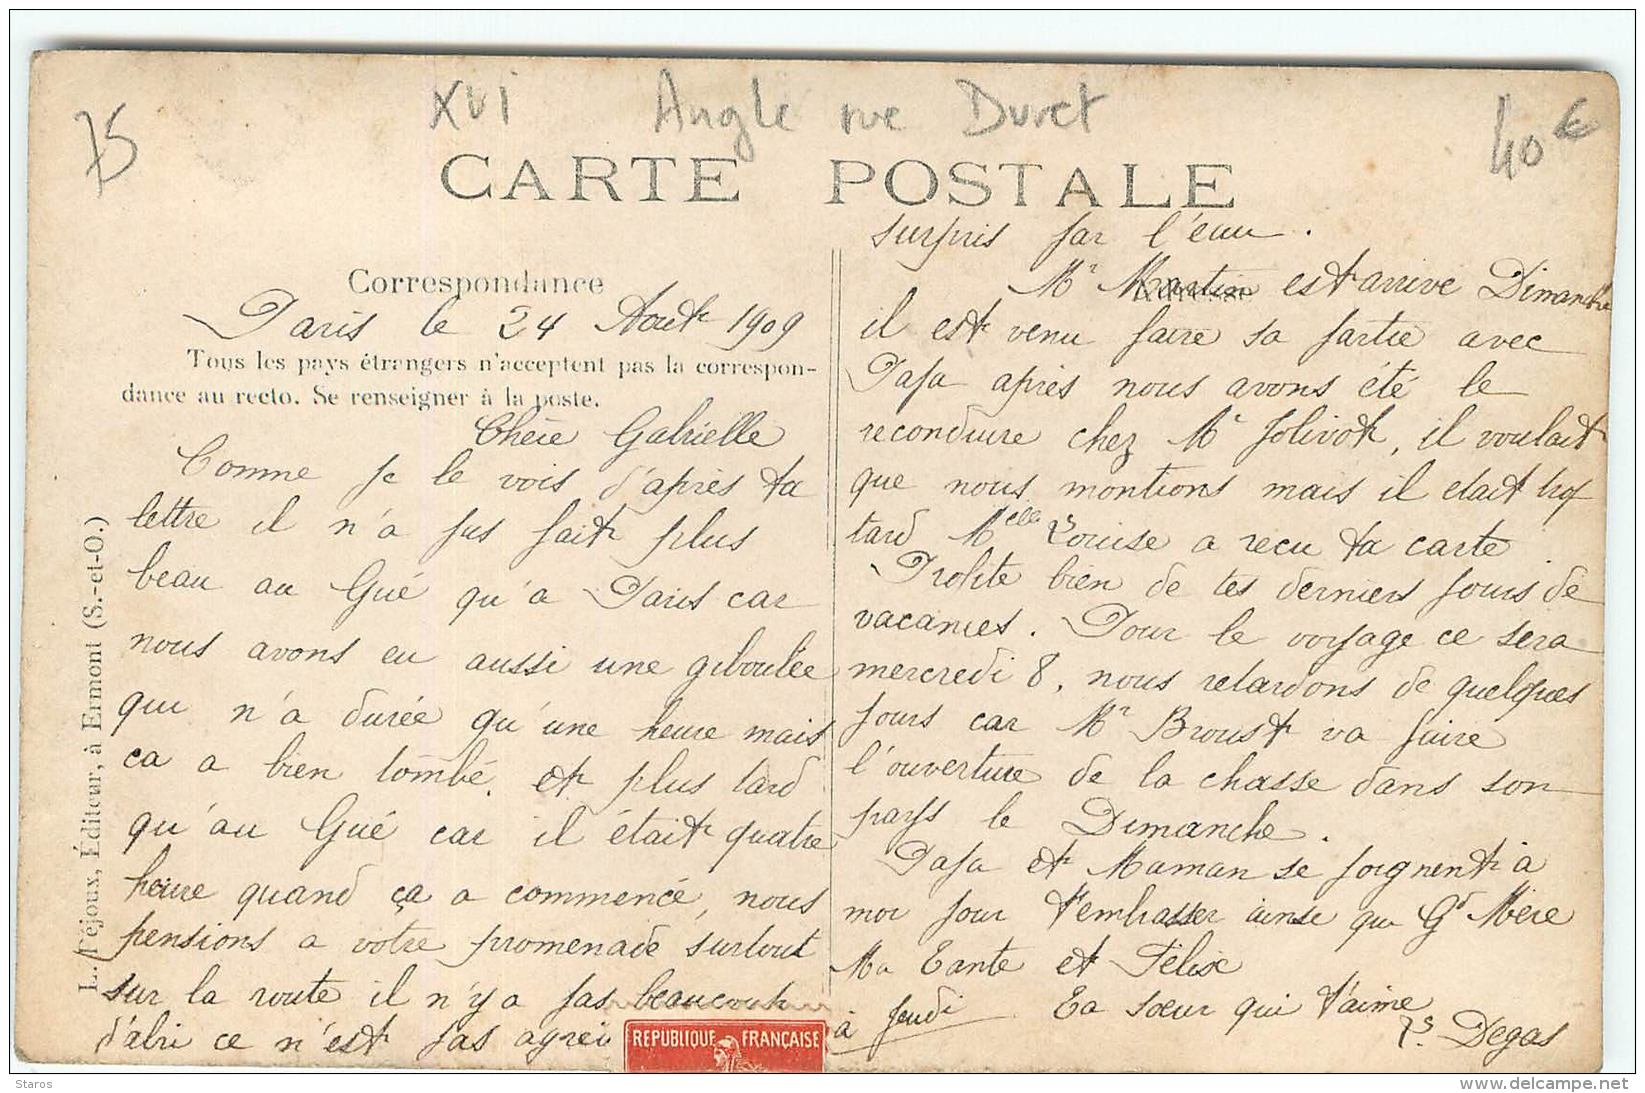 75
XVI Angle rue Duret
40 €
CARTE POSTALE
Correspondance
Paris le 24 Août 1909
Tous les pays étrangers n'acceptent pas la correspon-
dance au recto. Se renseigner à la poste.
Chère Gabrielle
Comme je le vois d'après ta
lettre il n'a pas fait plus
beau au Gué qu'a Paris car
nous avons eu aussi une giboulée
qui n'a durée qu'une heure mais
ca a bien tombé. et plus tard
qu'au Gué car il était quatre
heure quand ça a commencé, nous
pensions a votre promenade surtout
sur la route il n'y a pas beaucoup
d'abri ce n'est pas agréa
surpris par l'eau.
Mr Martin est arrive Dimanche
il est venu faire sa partie avec
Papa après nous avons été le
reconduire chez Mr Jolivot, il voulait
que nous montions mais il etait trop
tard Melle Louise a recu ta carte.
Profite bien de tes derniers jours de
vacances. Pour le voyage ce sera
mercredi 8, nous retardons de quelques
jours car Mr Broust va faire
l'ouverture de la chasse dans son
pays le Dimanche.
Papa et Maman se joignent a
moi pour t'embrasser ainse que Gd Mère
Ma Tante et Félix
à jeudi Ta sœur qui t'aime
Degas
L. Péjoux, Éditeur, à Ermont (S.-et-O.)
RÉPUBLIQUE FRANÇAISE
Staros
delcampe.net